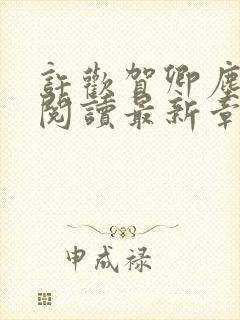 許歡賀卿塵
閱讀最新章
申成禄